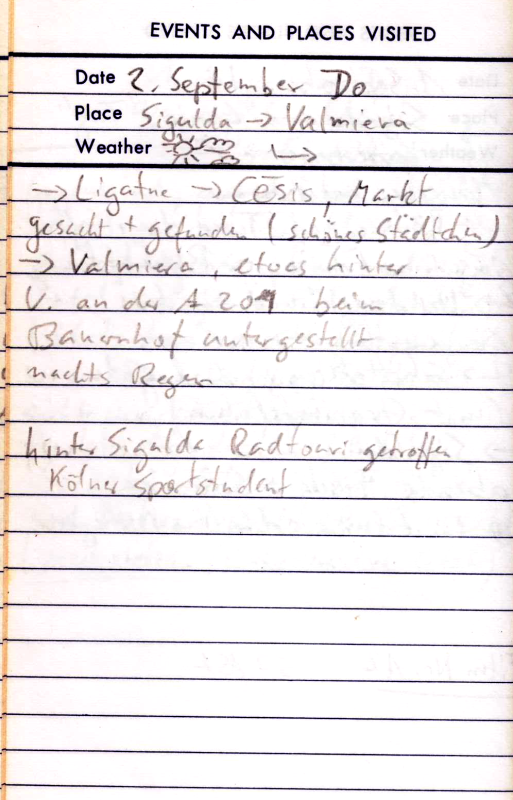 EVENTS AND PLACES VISITED
Date 2. September Do
Place Sigulda → Valmiera
Weather
→ Ligatne → Cēsis, Markt
gesucht + gefunden (schönes Städtchen)
→ Valmiera, etwas hinter
V. an der A 201 beim
Bauernhof untergestellt
nachts Regen
hinter Sigulda Radtouri getroffen
Kölner Sportstudent